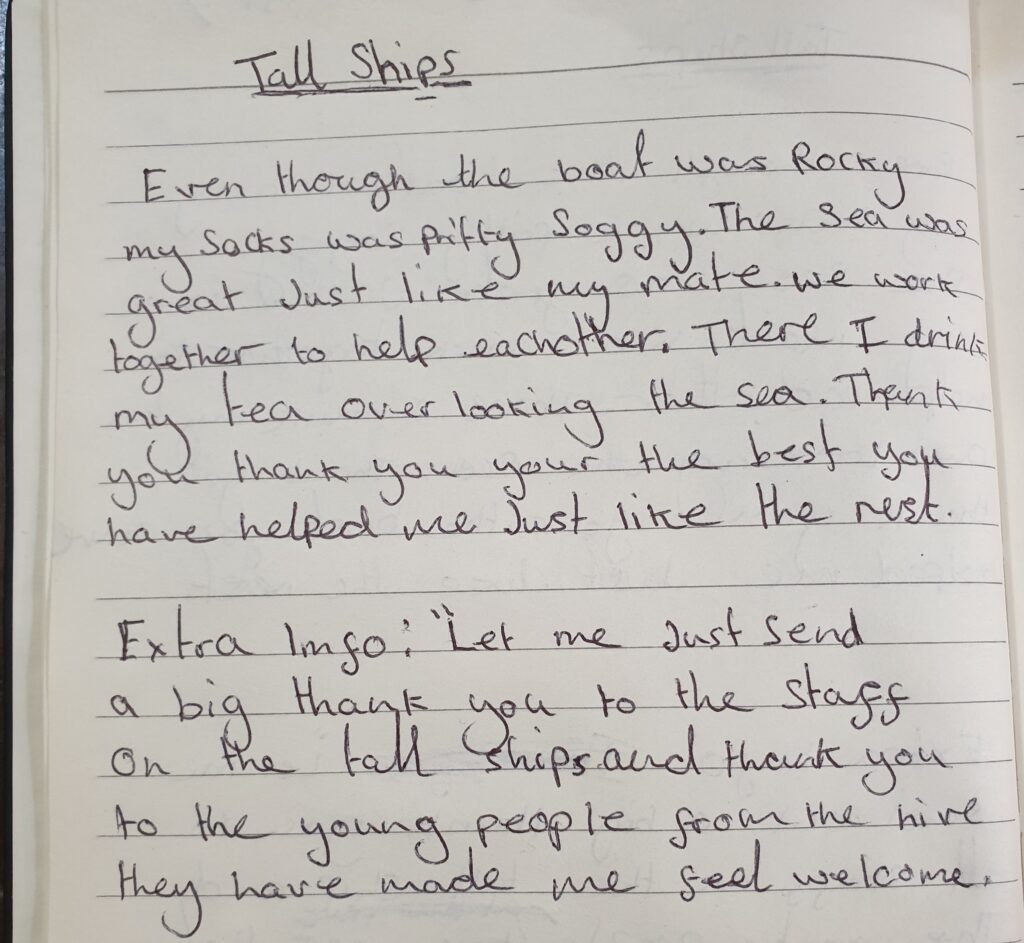 Tall Ships
Even though the boat was Rocky
my Socks was pritty Soggy. The Sea was
great Just like my mate. we work
together to help eachother. There I drink
my tea over looking the sea. Thank
you thank you your the best you
have helped me Just like the rest.
Extra Imfo: "Let me Just Send
a big thank you to the Staff
On the tall ships and thank you
to the young people from the hive
they have made me feel welcome.